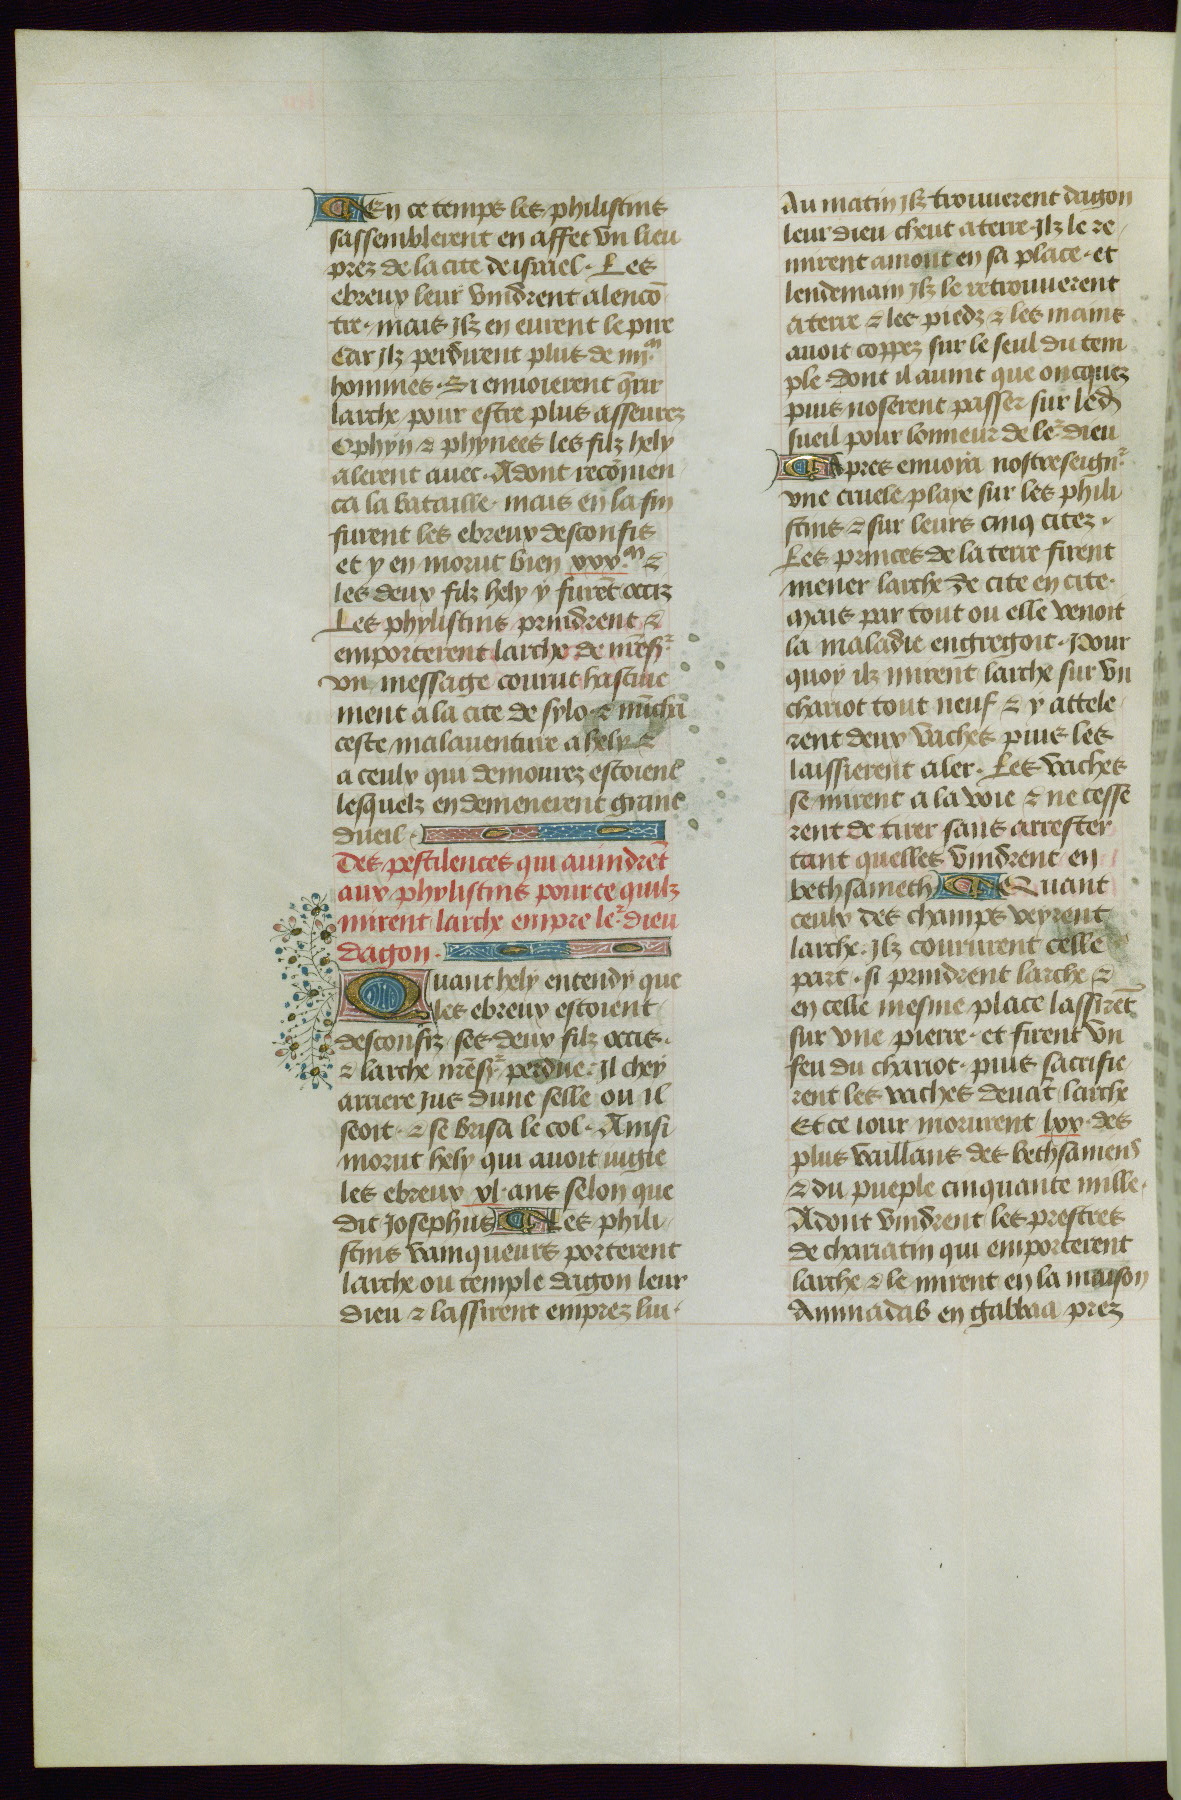 En ce temps les philistins
sassemblerent en affet vn lieu
prez de la cite de israel. Les
ebreux leur vindrent alenco̅
tre. mais ilz en eurent le pire
Car ilz perdirent plus de iiij.ᵐ
hommes. Si enuoierent q̅rir
larche pour estre plus asseurez
Ophyn ⁊ phynees les filz hely
alerent auec. Adont reco̅men
ca la bataille. mais en la fin
furent les ebreux desconfis
et y en morut bien xxx.ᵐ ⁊
les deux filz hely y fure̅t occiz
Les phylistins prindrent ⁊
emporterent larche de nr̅e sʳ
vn message courut hastiue
ment a la cite de sylo ⁊
ceste malauenture a hely ⁊
a ceulx qui demourez estoient
lesquelz en demenerent grant
dueil.
Des pestilences qui auindre̅t
aux phylistins pource quilz
mirent larche empre leʳ dieu
dagon.
Quant hely entendy que
les ebreux estoient
desconfiz ses deux filz occis.
⁊ larche nr̅e sʳ perdue. Il chey
arriere jus dune selle ou il
seoit. ⁊ se brisa le col. Ainsi
morut hely qui auoit iugie
les ebreux xl. ans selon que
dit Josephus Les phili
stins vainqueurs porterent
larche ou temple dagon leur
dieu ⁊ lassirent emprez lui.
Au matin ilz trouuerent dagon
leur dieu cheut a terre. Ilz le re
mirent amont en sa place. et
lendemain ilz le retrouuerent
a terre ⁊ les piedz ⁊ les mains
auoit coppez sur le seul du tem
ple. dont il auint que oncquez
puis noserent passer sur led̅
sueil pour lonneur de leʳ dieu
Apres enuoia nostre seignʳ
vne cruele playe sur les phili
stins ⁊ sur leurs cinq citez.
Les princes de la terre firent
mener larche de cite en cite.
Mais par tout ou elle venoit
la maladie engregoit. Pour
quoy ilz mirent larche sur vn
chariot tout neuf ⁊ y attele
rent deux vaches puis les
laissierent aler. Les vaches
se mirent a la voie ⁊ ne cesse
rent de tirer sans arrester
tant quelles vindrent en
bethsameth Quant
ceulx des champs veyrent
larche. ilz coururent celle
part. si prindrent larche ⁊
en celle mesme place lassire̅t
sur vne pierre. et firent vn
feu du chariot. puis sacrifie
rent les vaches deua̅t larche
Et ce iour morurent lxx. des
plus vaillans des bethsamens
⁊ du pueple cinquante mille.
Adont vindrent les prestres
de chariatin qui emporterent
larche ⁊ le mirent en la maison
Aminadab en gabbaa prez